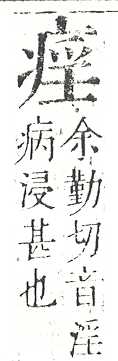 余勤切音淫
病浸甚也